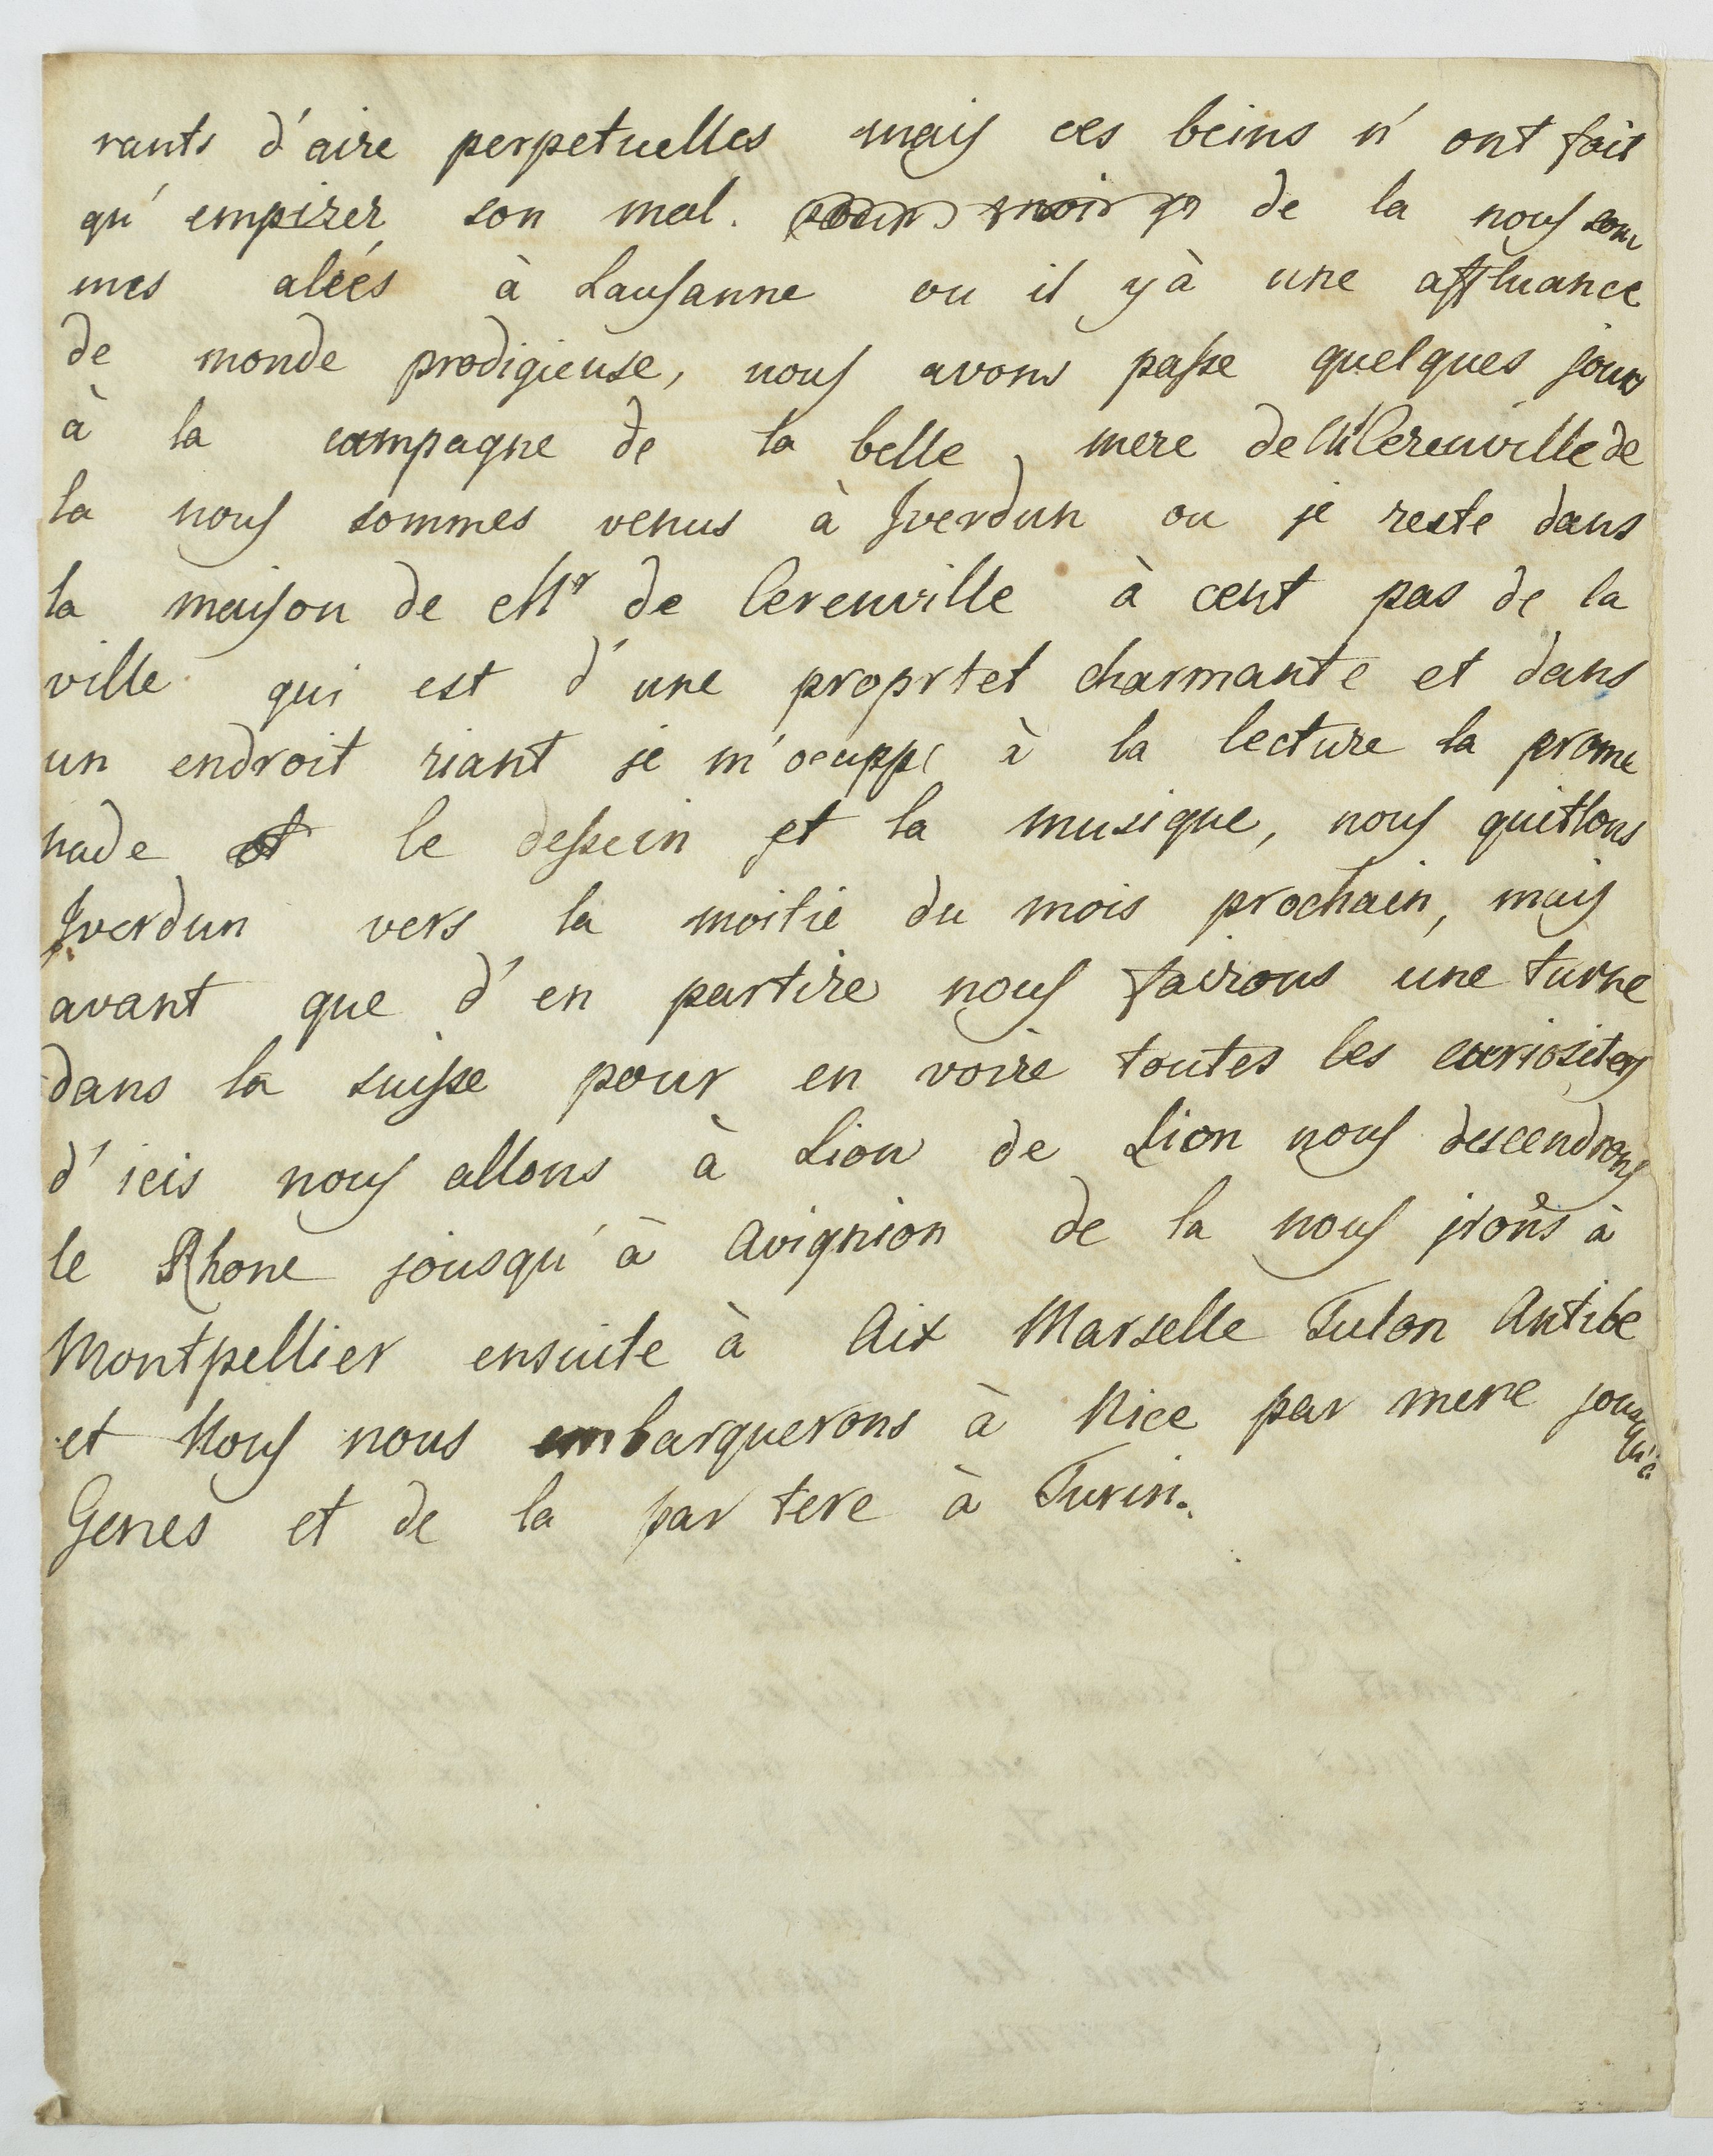 rants d'aire perpetuelles mais ces beins n'ont fait
qu'empirer son mal. de la nous som
mes aleés à Lausanne ou il y à une affluance
de monde prodigieuse, nous avons passe quelques jours
à la campagne de la belle mere de Mr Cerenville de
la nous sommes venus à Iverdun ou je reste dans
la maison de Mr de Cerenville à cent pas de la
ville qui est d'une proprtet charmante et dans
un endroit riant je m'ocuppe à la lecture la prome
nade et le dessein et la musique, nous quittons
Iverdun vers la moitie du mois prochain, mais
avant que d'en partire nous fairons une turne
dans la suisse pour en voire toutes les curiosites
d'icis nous allons à Lion de Lion nous descendrons
le Rhone jousqu'à Avignion de la nous irons à
Montpellier ensuite à Aix Marselle Tulon Antibe
et Nous nous embarquerons à Nice par mere jousqu'à
Genes et de la par tere à Turin.